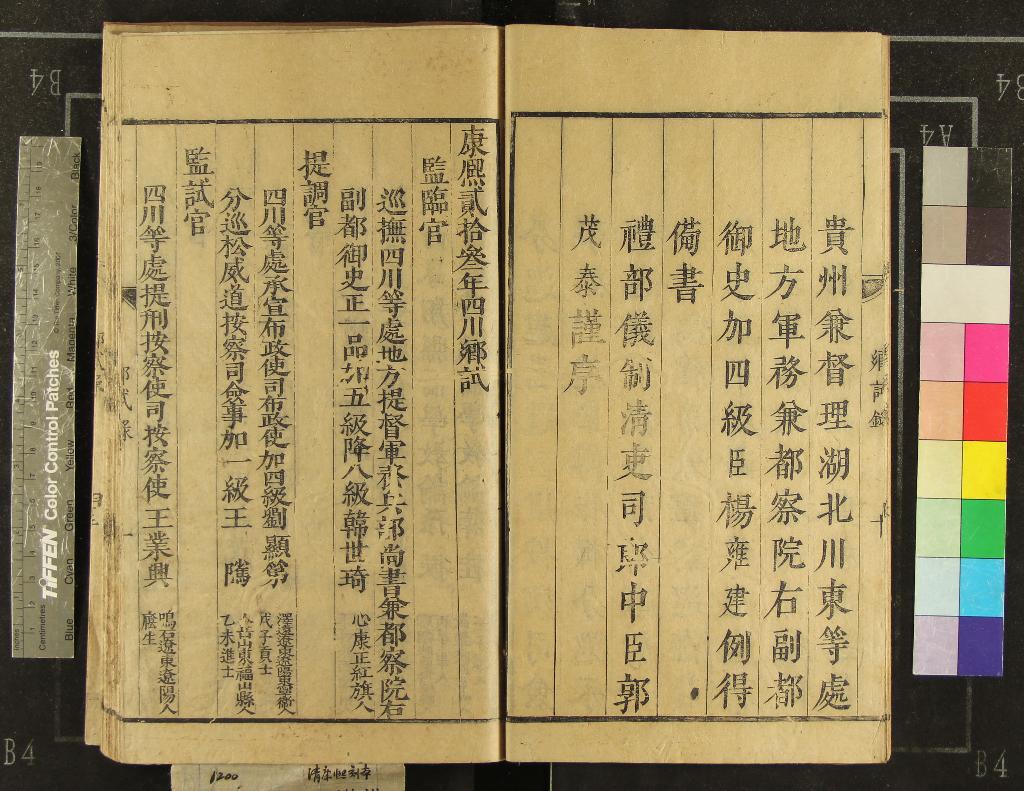 貴州兼督理湖北川東等處
地方軍務兼都察院右副都
御史加四級臣楊雍建例得
僃書
禮部儀制清吏司郎中臣郭
茂泰謹序
鄉試錄
康熙貳拾叄年四川鄉試
監臨官
巡撫四川等處地方提督軍務兵部尚書兼都察院右
副都御史正一品加五級降八級韓世琦
心康正紅旗人
提調官
四川等處承宣布政使司布政使加四級劉顯第
澤遠遼東遼陽東寧衛人
戊子貢士
分巡松威道按察司僉事加一級王隲
山東福山縣人
乙未進士
監試官
四川等處提刑按察使司按察使王業興
鳴石遼東遼陽人
廕生
試錄
1200
清康熙刻本
TIFFEN Color Control Patches
Blue Cyan Green Yellow Red Magenta White 3/Color Black
Centimetres
Inches
B4
B4
A4
B4
B4